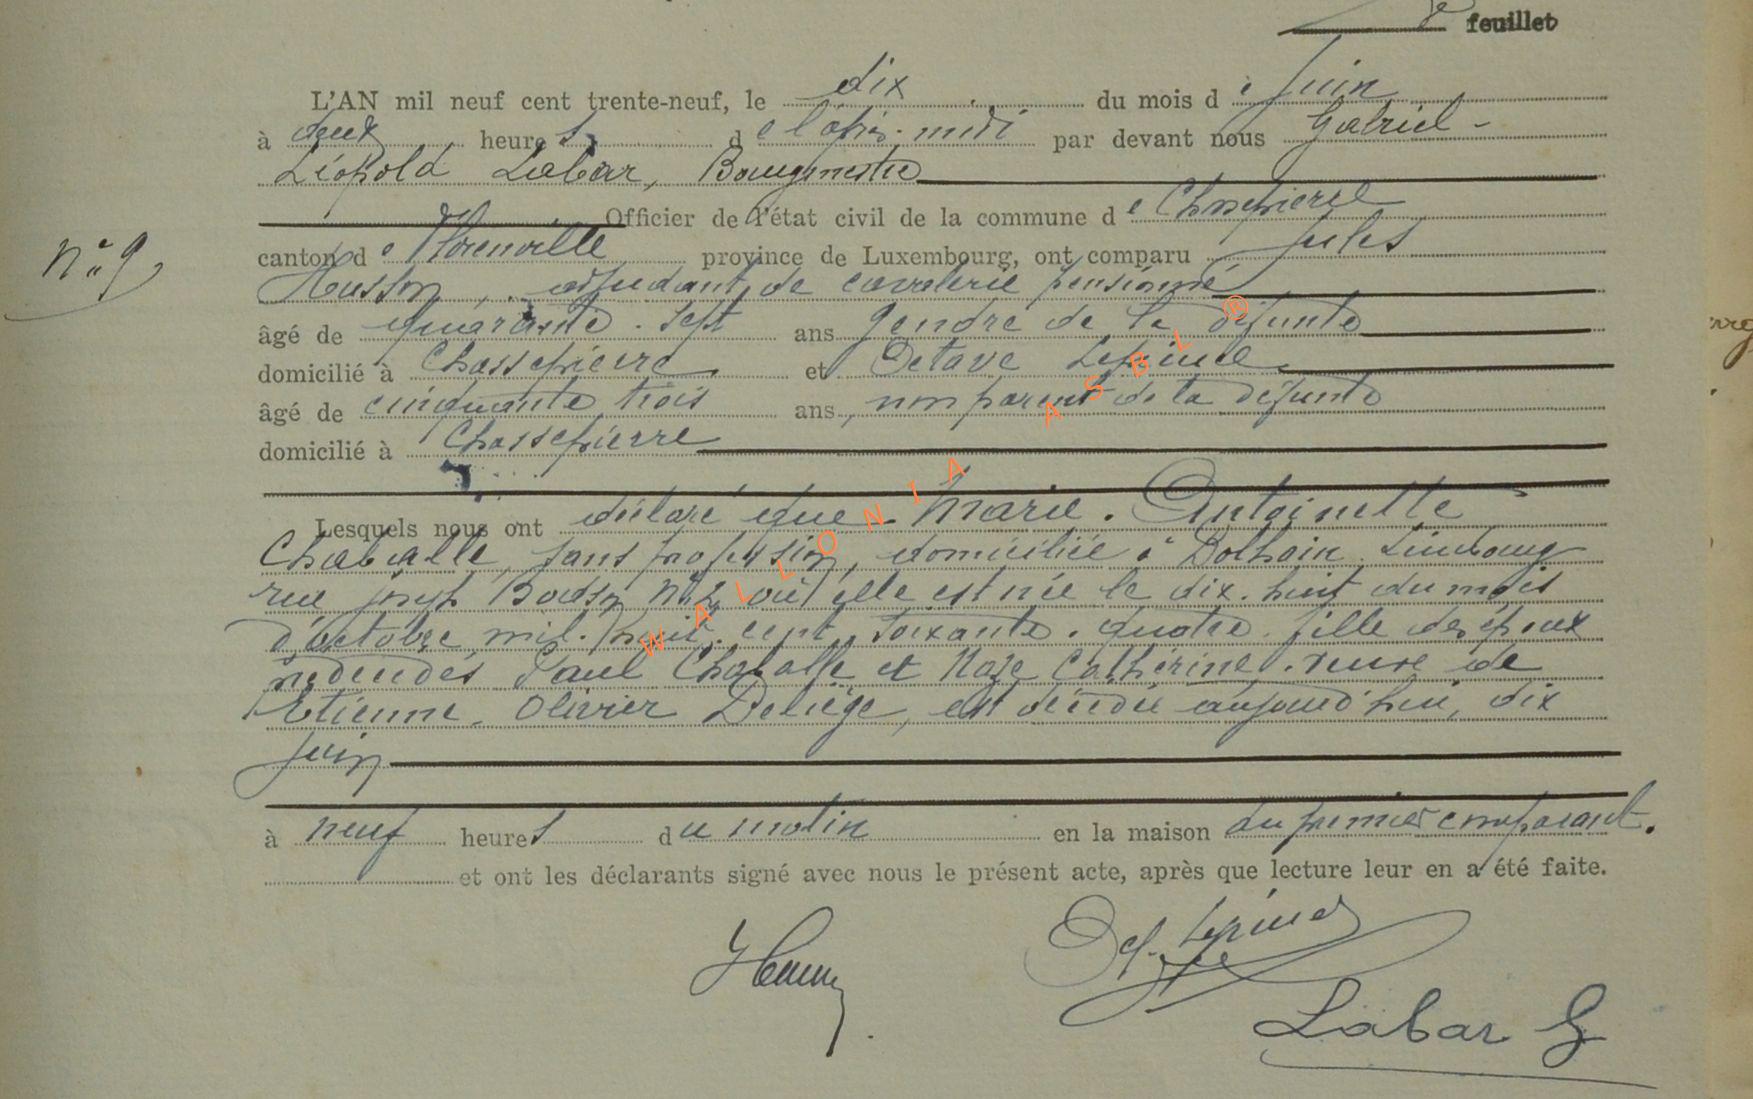 feuillet
L'AN mil neuf cent trente-neuf, le dix du mois de juin
à deux heures de l'après-midi par devant nous Gabriel-
Léopold Labar, Bourgmestre
Officier de l'état civil de la commune de Chassepierre
n° 9
canton de Florenville province de Luxembourg, ont comparu Jules
Husson, adjudant de cavalerie pensionné
âgé de quarante-sept ans gendre de la défunte
domicilié à Chassepierre et Octave Lepine
âgé de cinquante trois ans, non parent de la défunte
domicilié à Chassepierre
Lesquels nous ont déclaré que Marie-Antoinette
Chaballe, sans profession, domiciliée à Dolhain Limbourg
rue Joseph Bodson n° 2 où elle est née le dix-huit du mois
d'octobre mil-huit-cent soixante-quatre fille des époux
Paul Chaballe et Naze Catherine veuve de
Etienne-Olivier Deliège, est décédée aujourd'hui, dix
juin
à neuf heures du matin en la maison du premier comparant.
et ont les déclarants signé avec nous le présent acte, après que lecture leur en a été faite.
Oct. Lepine
JHusson
Labar G
WALLONIA ASBL ®